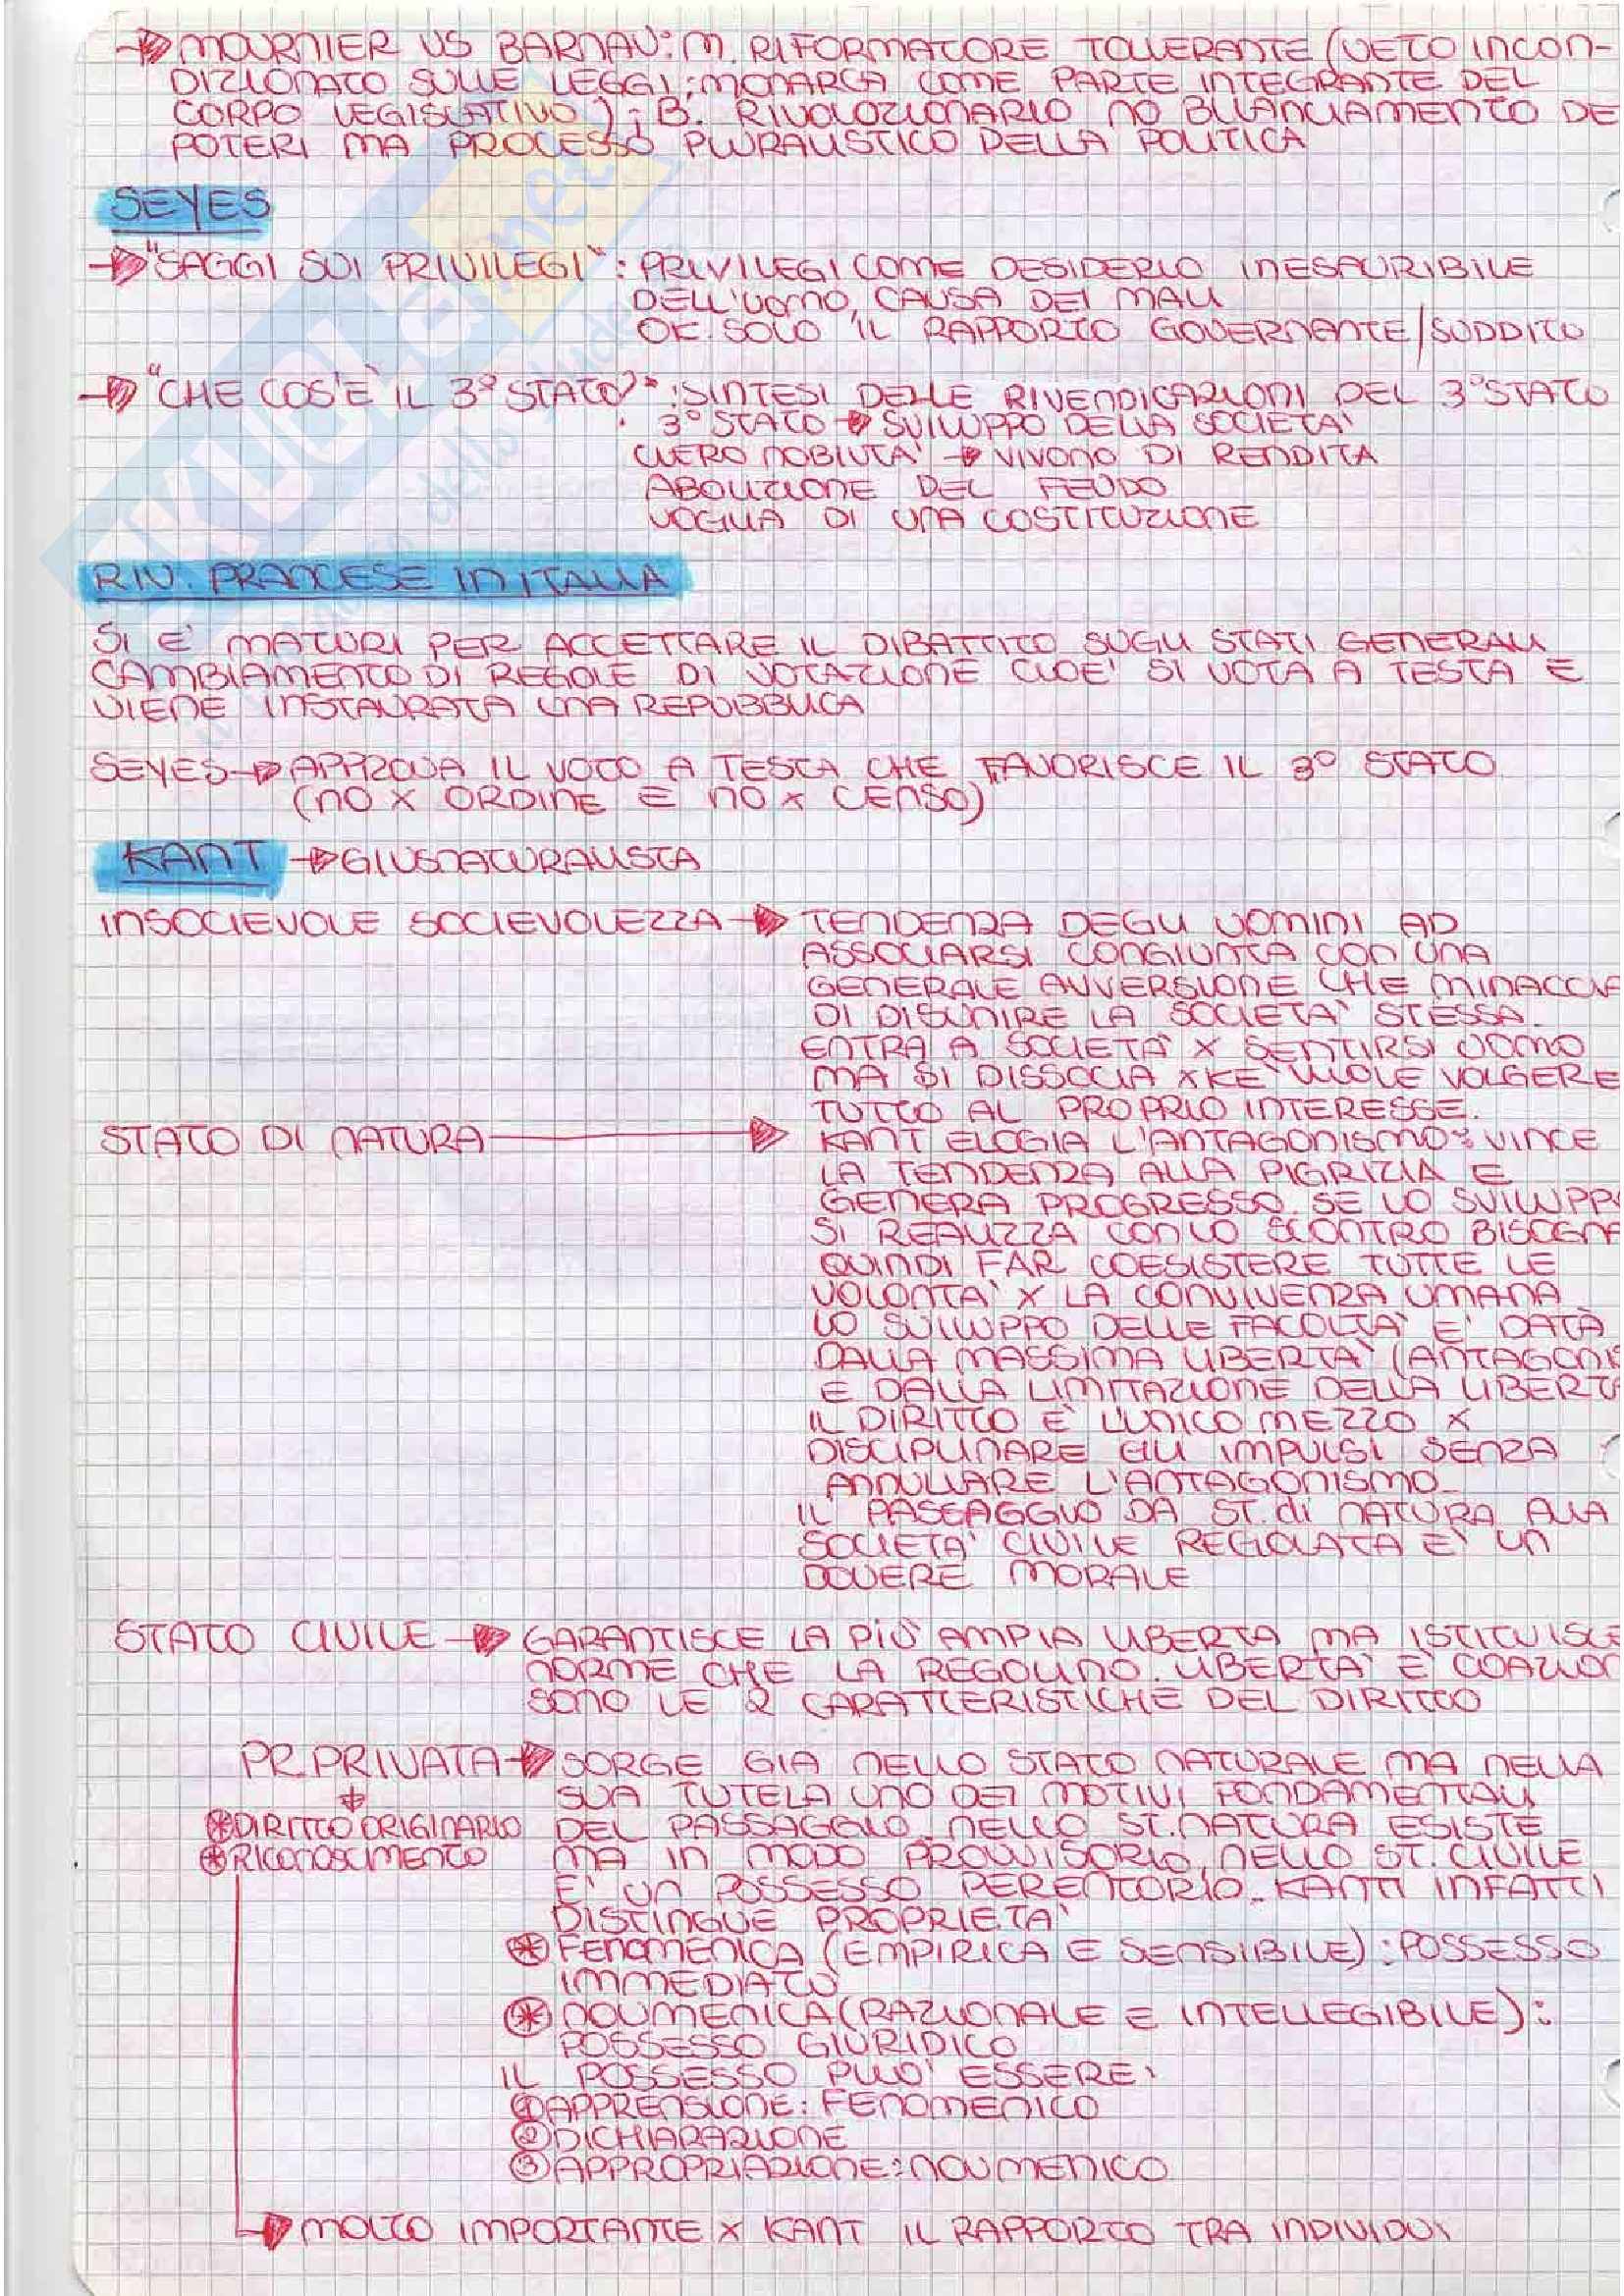 → MOURNIER VS BARNAV: M. RIFORMATORE TOLLERANTE (VETO INCON-
DIZIONATO SULLE LEGGI; MONARCA COME PARTE INTEGRANTE DEL
CORPO LEGISLATIVO); B. RIVOLOZIONARIO NO BILANCIAMENTO DE
POTERI MA PROCESSO PLURALISTICO DELLA POLITICA
SEYES
→ "SAGGI SUI PRIVILEGI": PRIVILEGI COME DESIDERIO INESAURIBILE
DELL'UOMO, CAUSA DEI MALI
OK. SOLO IL RAPPORTO GOVERNANTE/SUDDITO
→ "CHE COS'E' IL 3° STATO?": SINTESI DELLE RIVENDICAZIONI DEL 3° STATO
3° STATO → SVILUPPO DELLA SOCIETA'
CLERO NOBILTA' → VIVONO DI RENDITA
ABOLIZIONE DEL FEUDO
VOGLIA DI UNA COSTITUZIONE
RIV. FRANCESE IN ITALIA
SI E' MATURI PER ACCETTARE IL DIBATTITO SUGLI STATI GENERALI
CAMBIAMENTO DI REGOLE DI VOTAZIONE CIOE' SI VOTA A TESTA E
VIENE INSTAURATA UNA REPUBBLICA
SEYES → APPROVA IL VOTO A TESTA CHE FAVORISCE IL 3° STATO
(NO X ORDINE E NO X CENSO)
KANT → GIUSNATURALISTA
INSOCIEVOLE SOCIEVOLEZZA → TENDENZA DEGLI UOMINI AD
ASSOCIARSI CONGIUNTA CON UNA
GENERALE AVVERSIONE CHE MINACCIA
DI DISUNIRE LA SOCIETA' STESSA.
ENTRA A SOCIETA' X SENTIRSI UOMO
MA SI DISSOCIA XKE' VUOLE VOLGERE
TUTTO AL PROPRIO INTERESSE.
STATO DI NATURA → KANT ELOGIA L'ANTAGONISMO: VINCE
LA TENDENZA ALLA PIGRIZIA E
GENERA PROGRESSO. SE LO SVILUPPO
SI REALIZZA CON LO SCONTRO BISOGNA
QUINDI FAR COESISTERE TUTTE LE
VOLONTA' X LA CONVIVENZA UMANA
LO SVILUPPO DELLE FACOLTA' E' DATA
DALLA MASSIMA LIBERTA' (ANTAGONIS
E DALLA LIMITAZIONE DELLA LIBERTA
IL DIRITTO E' L'UNICO MEZZO X
DISCIPLINARE GLI IMPULSI SENZA
ANNULLARE L'ANTAGONISMO.
IL PASSAGGIO DA ST. di NATURA ALLA
SOCIETA' CIVILE REGOLATA E' UN
DOVERE MORALE
STATO CIVILE → GARANTISCE LA PIU' AMPIA LIBERTA MA ISTITUISCE
NORME CHE LA REGOLINO. LIBERTA' E COAZION
SONO LE 2 CARATTERISTICHE DEL DIRITTO
PR. PRIVATA → SORGE GIA NELLO STATO NATURALE MA NELLA
SUA TUTELA UNO DEI MOTIVI FONDAMENTALI
⊛ DIRITTO ORIGINARIO DEL PASSAGGIO. NELLO ST. NATURA ESISTE
⊛ RICONOSCIMENTO MA IN MODO PROVVISORIO, NELLO ST. CIVILE
E' UN POSSESSO PERENTORIO. KANT INFATTI
DISTINGUE PROPRIETA'
⊛ FENOMENICA (EMPIRICA E SENSIBILE): POSSESSO
IMMEDIATO
⊛ NOUMENICA (RAZIONALE E INTELLEGIBILE):
POSSESSO GIURIDICO
IL POSSESSO PUO' ESSERE:
① APPRENSIONE: FENOMENICO
② DICHIARAZIONE
③ APPROPRIAZIONE: NOUMENICO
→ MOLTO IMPORTANTE X KANT IL RAPPORTO TRA INDIVIDUI
SKUOLA.net